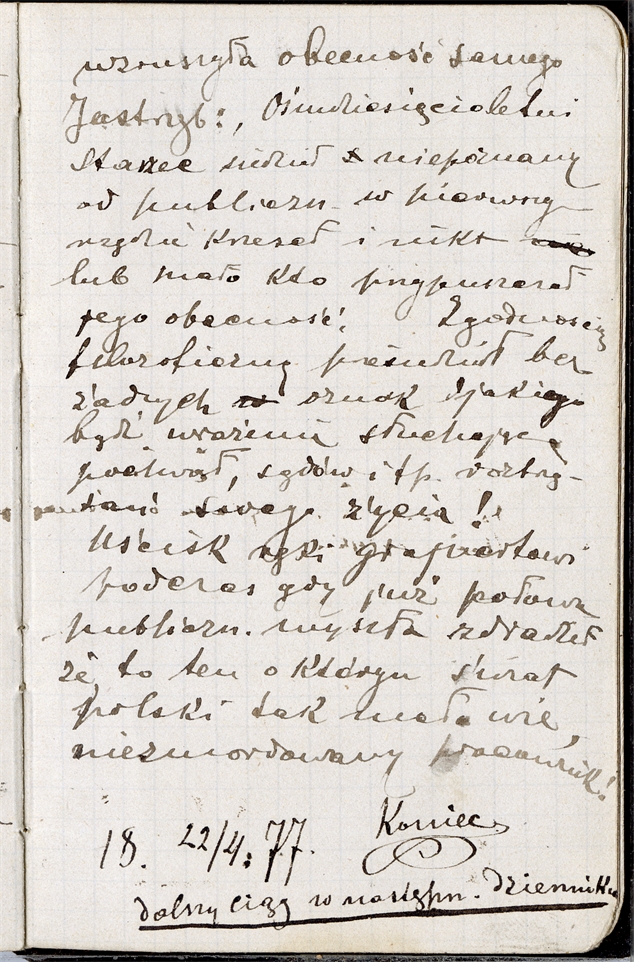 wzruszyła obecność samego
Jastrzęb:, Ośmdziesięcioletni
starzec siedział niepoznany
od publiczn. w pierwszy
rzędzie krzeseł i nikt
lub mało kto przypuszczał
jego obecność.
filozoficzny przesiedział bez
żadnych oznak jakiego
bądź wrażenia słuchając
pochwał, sądów i tp. roztrzą-
sań swego życia!
Uścisk ręki
podczas gdy już połowa
publiczn. wyszła zdradził
że to ten o którym świat
polski tak mało wie,
niezmordowany pracownik!
18. 22/4. 77. Koniec
dalszy ciąg w następn. dzienniku